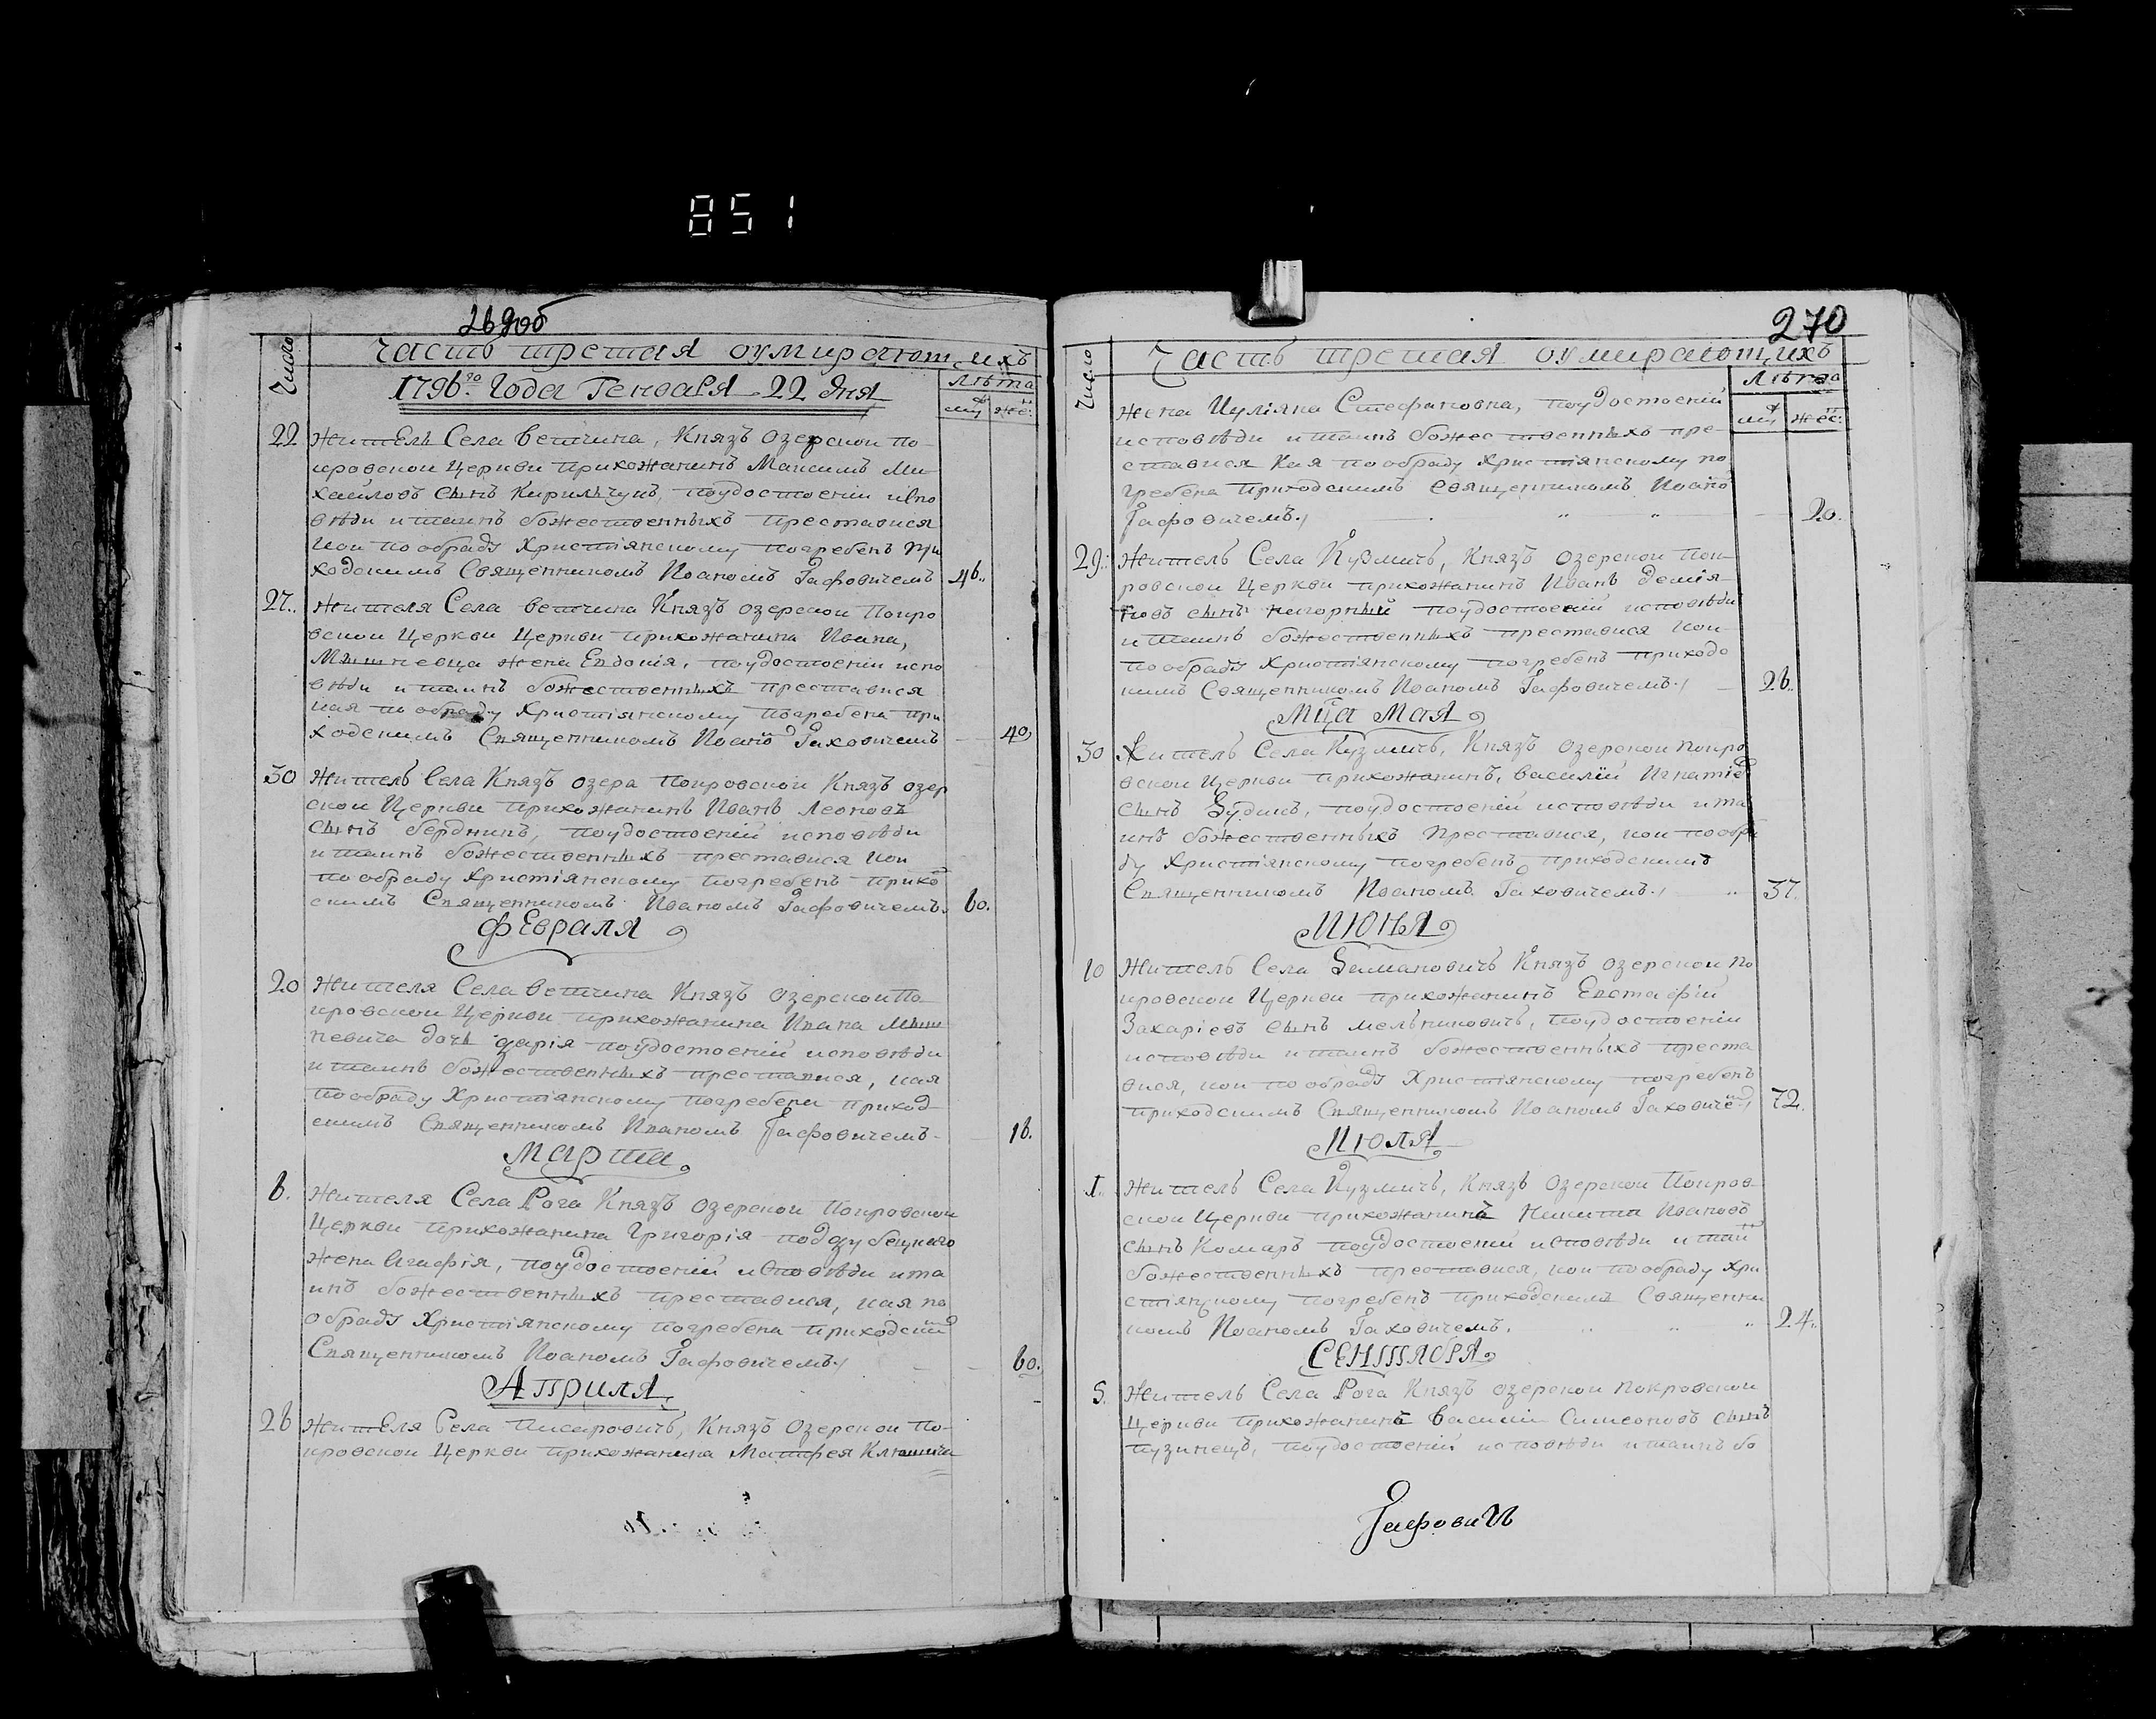 851
269об
Число
Часть третая оумирающихъ
1796го Года Генваря 22 дня
Лѣта
муж жен:
22 Жытель Села Ветчина, Князъ Озерскои по-
кровскои Церкви прихожанинъ Максимъ Ми-
хаиловъ сынъ Кирильчукъ, поудостоеніи испо
вѣди итаинъ божественныхъ преставися
кои пообраду Христіянскому погребенъ при
ходскимъ Священникомъ Иоаномъ Гафовичемъ 46.
27. Жителя Села Ветчина Князъ озерскои Покро
вскои Церкви Церкви прихожанина Ивана,
Мышневца жена Евдокія, поудостоеніи испо
вѣди итаинъ божественныхъ преставися
кая по обраду Христіянскому погребена при
ходскимъ Священникомъ Иоано Гаховичемъ 40
30 Житель Села Князъ озера Покровскои Князъ озер
скои Церкви прихожанинъ Иванъ Леоновъ
сынъ бердникъ, поудостоеніи исповѣди
итаинъ божественныхъ преставися кои
пообраду Христіянскому погребенъ прихо
скимъ Священникомъ Иваномъ Гафовичемъ. 60.
Февраля
20 Жителя Села Ветчина Князъ Озерскои По-
кровскои Церкви прихожанина Ивана Мыш
невича дочь дарія поудостоеніи исповѣди
итаинъ божественныхъ преставися, кая
пообраду Христіянскому погребена приход
скимъ Священникомъ Иваномъ Гафовичемъ - 16.
Марта
6. Жителя Села Рога Князъ Озерскои Покровскои
Церкви прихожанина Григорія поддубецкаго
жена Агафія, поудостоеніи исповѣди ита
инъ божественныхъ преставися, кая по
обраду Христіянскому погребена приходски
Священникомъ Иоаномъ Гафовичемъ 60.
Априля
26 Жителя Села Писаровичъ, Князъ Озерскои По-
кровскои Церкви прихожанина Матфея
270
Число
Часть третая оумирающихъ
Лѣта
муж жес:
жена Иуліяна Стефановна, поудостоеніи
исповѣди итаинъ божественныхъ пре-
ставися кая пообраду Христіянскому по
гребена Приходскимъ Священникомъ Иоано
Гафовичемъ. 20.
29. Житель Села Кузмичъ, Князъ Озерскои Пок-
ровскои Церкви прихожанинъ Иванъ Демія-
новъ сынъ поудостоеніи исповѣди
итаинъ божественныхъ преставися кои
пообраду Христіянскому погребенъ приходс
кимъ Священникомъ Иваномъ Гафовичемъ. 26.
Мца Мая
30 Житель Села Кузмичъ, Князъ Озерскои Покро
вскои Церкви прихожанинъ, Василій Игнатіе
сынъ поудостоеніи исповѣди ита
инъ божественныхъ Преставися, кои пообра
ду Христіянскому погребенъ приходскимъ
Священникомъ Иваномъ Гаховичемъ. 37.
Июня
10 Житель Села Князъ Озерскои По
кровскои Церкви прихожанинъ Евстафій
Захаріевъ сынъ мельниковичъ, поудостоеніи
исповѣди итаинъ божественныхъ преста
вися, кои пообраду Христіянскому погребенъ
приходскимъ Священникомъ Иоаномъ Гаховиче 72.
Июля
1. Житель Села Кузмичъ, Князъ Озерскои Покров-
скои Церкви прихожанинъ Никита Ивановъ
сынъ Комаръ поудостоеніи исповѣди итаи
божественныхъ преставися, кои пообраду хри
стіянскому погребенъ приходскимъ Священни
комъ Иоаномъ Гаховичемъ. 24.
Сентября
5. Житель Села Рога Князъ озерскои покровскои
Церкви прихожанинъ Василіи Симеоновъ сынъ
пузинецъ, поудостоеніи исповѣди итаинъ бо
Гафовичъ